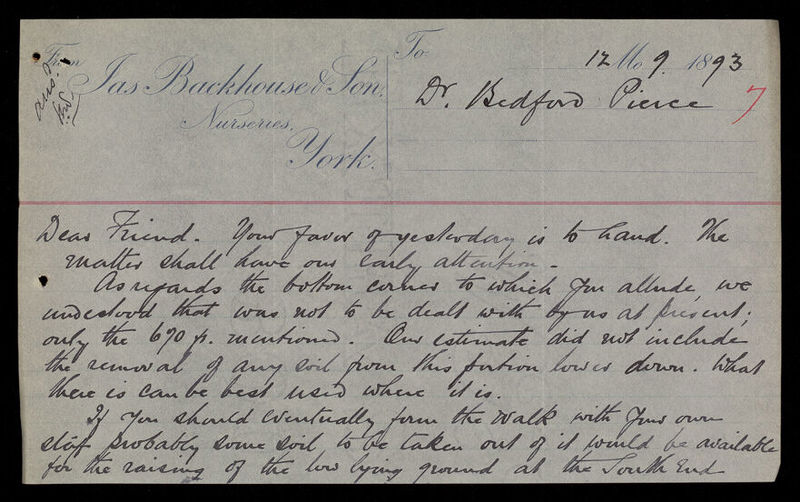 From
Jas Backhouse & Son,
Nurseries,
York.
ans.
To
12 Mo 9. 1893
Dr. Bedford Pierce
7
Dear Friend. Your favor of yesterday is to hand. The
matter shall have our early attention -
As regards the bottom corner to which you allude, we
understood that was not to be dealt with by us at present;
only the 690 p. mentioned. Our estimate did not include
the removal of any soil from this portion lower down. What
there is can be best used where it is.
If you should eventually form the walk with your own
staff probably some soil to be taken out of it would be available
for the raising of the low lying ground at the South End